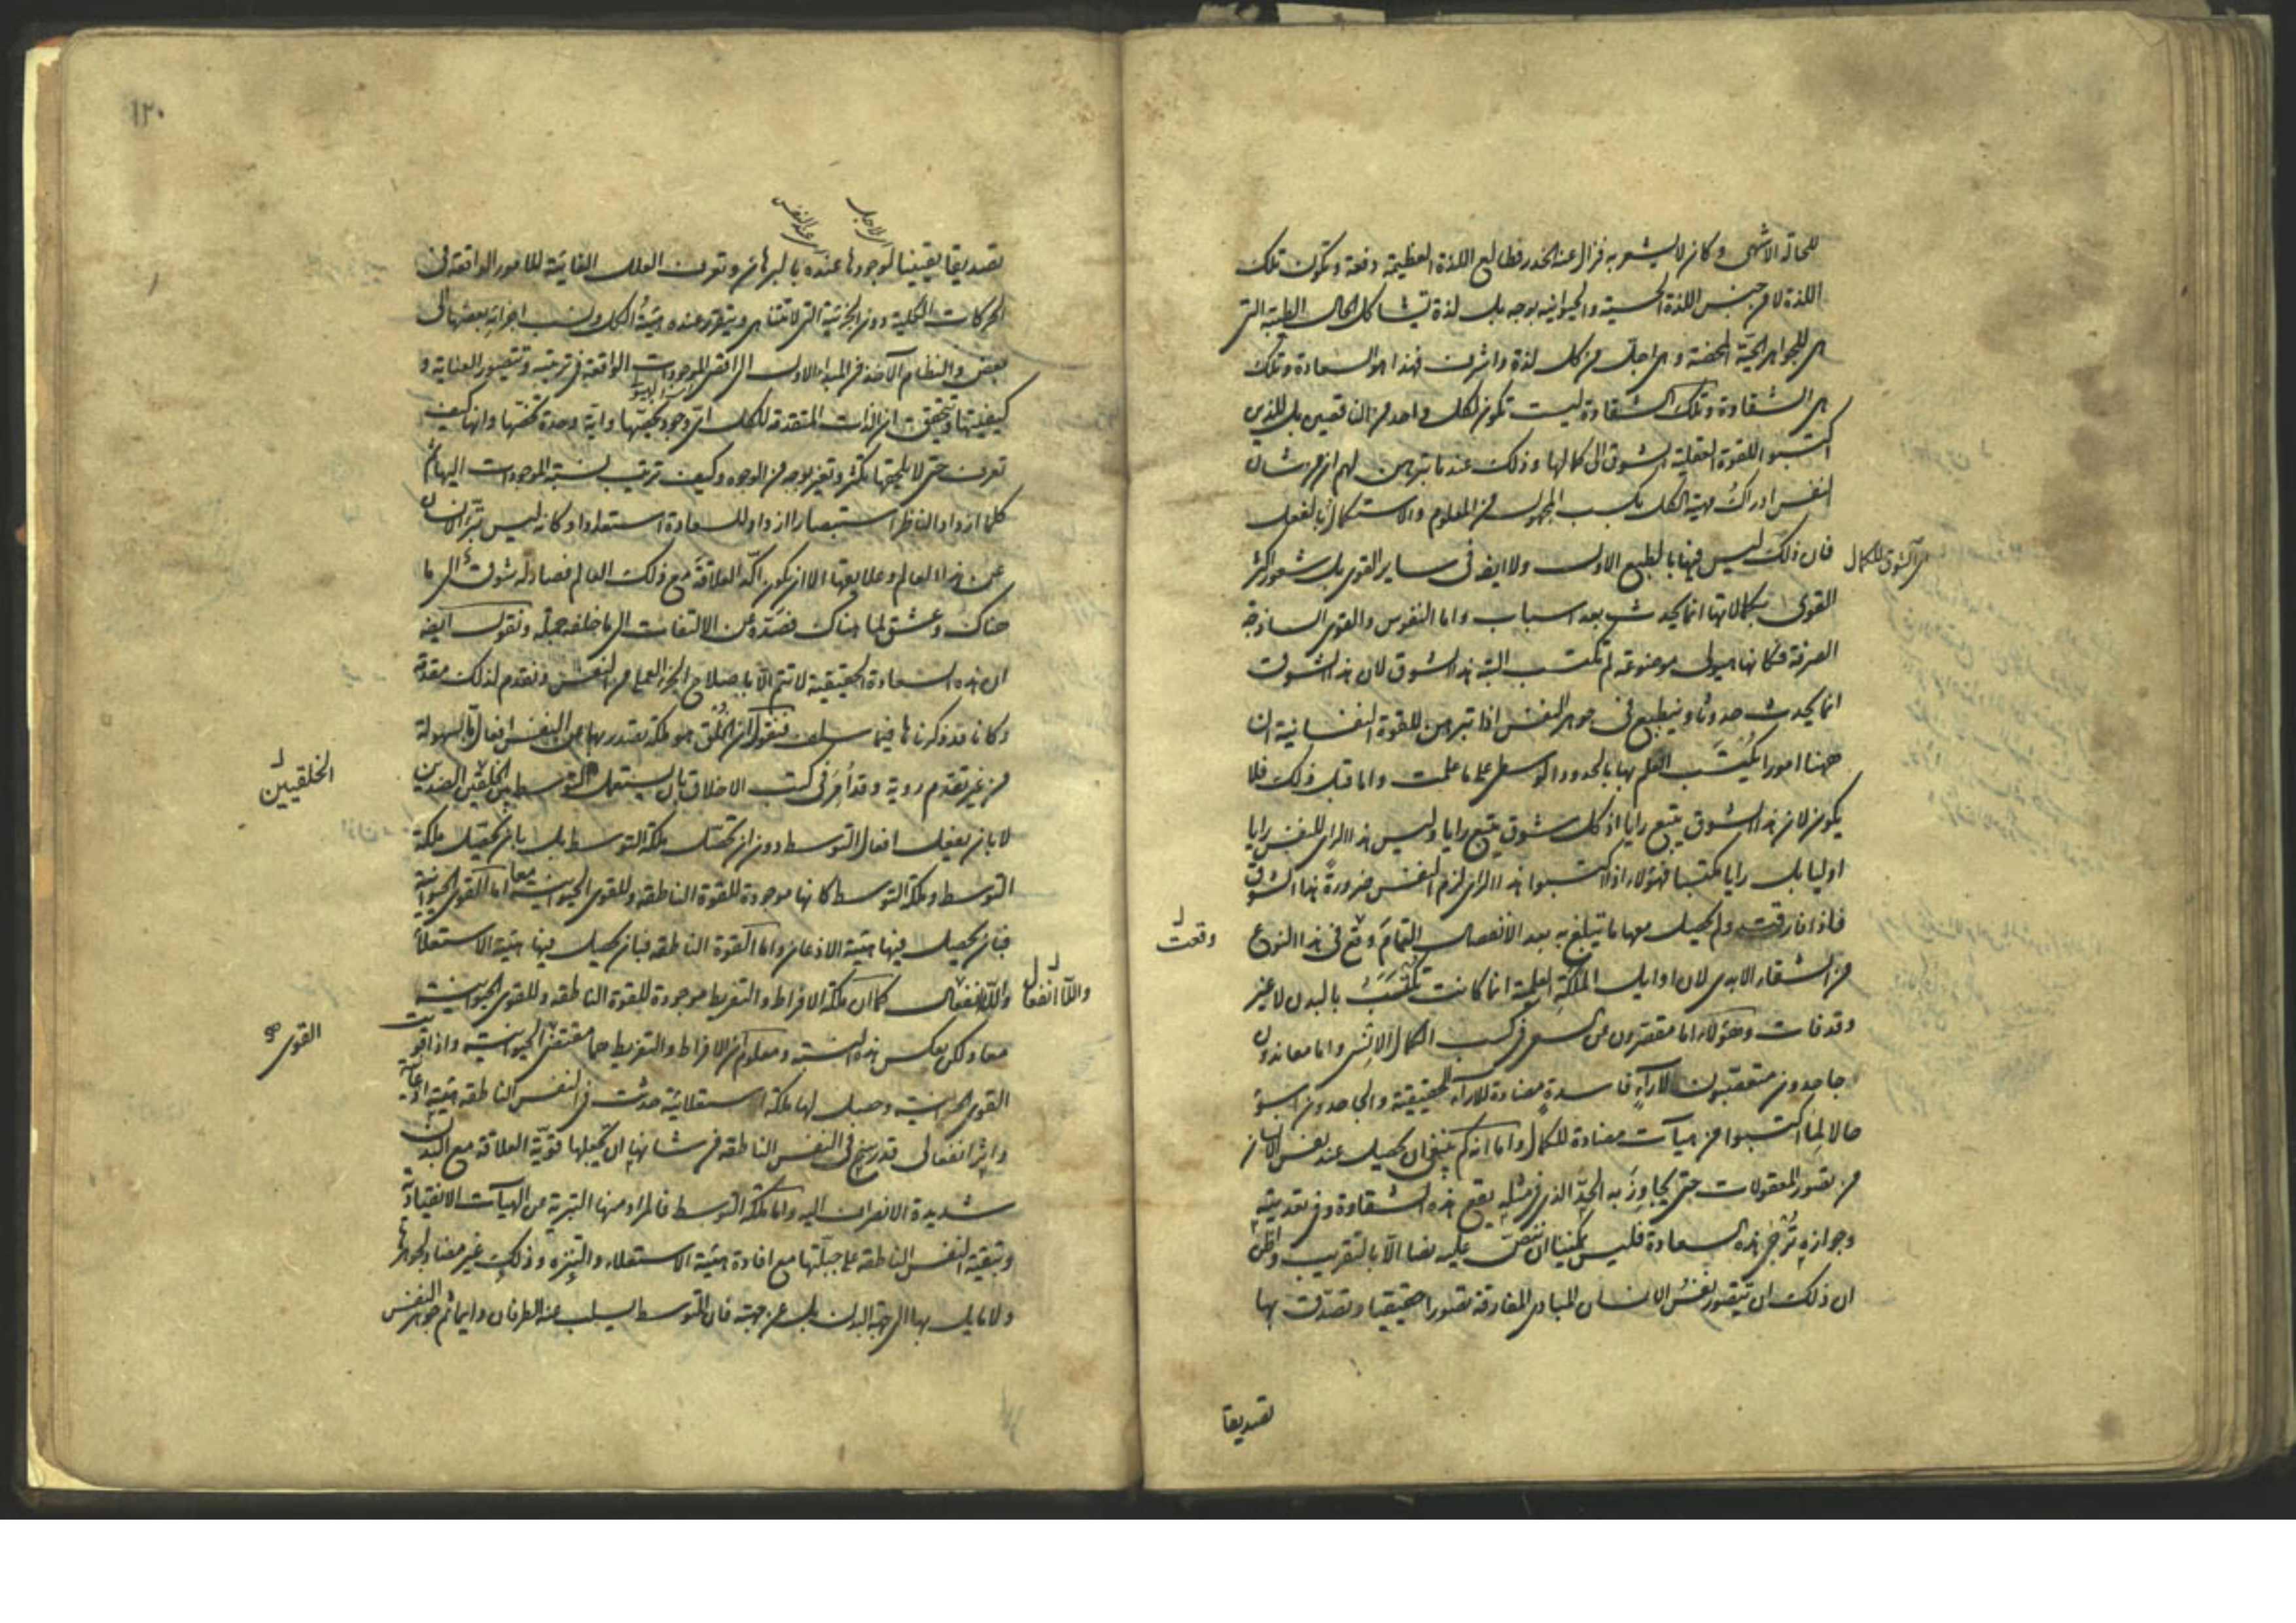 للحالة الاشهى وكان لا يشعر به فزال عنه الخدر فطالع اللذة العظيمة دفعة وتكون تلك
اللذة لا من جنس اللذة الحسية والحيوانية بوجه بل لذة تشاكل الحال الطيبة التى
هى للجواهر الحيّة المحضة وهى اجل من كل لذة واشرف فهذا هو السعادة وتلك
هى الشقاوة وتلك الشقاوة ليست تكون لكل واحد من الناقصين بل للذين
اكتسبوا للقوة العقلية الشوق الى كمالها وذلك عندما تبرهن لهم ان من شان
النفس ادراك مهية الكل بكسب المجهول من المعلوم والاستكمال بالفعل
فان ذلك ليس فيها بالطبع الاول ولا ايضا فى ساير القوى بل شعور اكثر
اى الشوق للكمال
القوى بكمالاتها انما يحدث بعد اسباب واما النفوس والقوى الساذجة
الصرفة فكانها هيولى موضوعة لم تكتسب البتة هذا الشوق لان هذا الشوق
انما يحدث حدوثا وينطبع فى جوهر النفس اذا تبرهن للقوة النفسانية ان
ههنا امورا يُكتسَب العلم بها بالحدود الوسطى على ما علمت واما قبل ذلك فلا
يكون لان هذا الشوق يتبع رايا اذ كل شوق يتبع رايا وليس هذا الراى للنفس رايا
اوليا بل رايا مكتسبا فهؤلاء اذا اكتسبوا هذا الراى لزم النفس ضرورةً هذا الشوق
فاذا فارقت ولم يحصل معها ما تبلغ به بعد الانفصال التمامَ وقع فى هذا النوع
وقعت
من الشقاء الابدى لان اوايل الملكة العلمية انما كانت تكتسَب بالبدن لا غير
وقد فات وهؤلاء اما مقصّرون عن السعى فى كسب الكمال الانسى واما معاندون
جاحدون متعصّبون لآراء فاسدة مضادة للآراء الحقيقية والجاحدون اسوء
حالا لِما اكتسبوا من هيآت مضادة للكمال واما انه كم ينبغى ان يحصل عند نفس الانسان
من تصور المعقولات حتى يجاوز به الحدّ الذى فى مثله يقع هذه الشقاوة وفى تعديه
وجوازه تُرجى هذه السعادة فليس يمكننا ان ننصّ عليه نصا الّا بالتقريب واظن
ان ذلك ان تتصور نفسُ الانسان المبادى المفارقة تصورا حقيقيا وتصدّق بها
تصديقا
١٢٠
اى لاجل
اى عند النفس
تصديقا يقينيا لوجودها عنده بالبرهان وتعرف العلل الغائية للامور الواقعة فى
الحركات الكلية دون الجزئية التى لا تتناهى ويتقرر عنده هيئةُ الكل ونسب اجزائه بعضها الى
بعض والنظام الآخذ من المبدا الاول الى اقصى الموجودات الواقعة فى ترتيبه وتتصور العناية و
كيفيتها وتتحقق ان الذات المتقدمة للكل اىّ وجود يخصّها واية وحدة تخصّها وانها كيف
تعرف حتى لا يلحقها تكثّر وتغير بوجه من الوجوه وكيف ترتيب نسبة الموجودات اليها ثم
كلما ازداد الناظر استبصارا ازداد للسعادة استعدادا وكانه ليس يتبرّأ الانسان
عن هذا العالم وعلايقه الا ان يكون اكّد العلاقة مع ذلك العالم فصار له شوق الى ما
هناك وعشق لما هناك فصدّه عن الالتفات الى ما خلفه جملة ونقول ايضا
ان هذه السعادة الحقيقية لا تتم الّا باصلاح الجزء العملى من النفس ونقدم لذلك مقدمة
وكانا قد ذكرناها فيما سلف فنقول ان الخُلُق هو ملكة تصدر بها عن النفس افعال ما بسهولة
من غير تقدم روية وقد اُمِرَ فى كتب الاخلاق بان يستعمل التوسط بين الخلقين الضدين
الخلقيين
لا بان يفعل افعال التوسط دون ان تحصل ملكة التوسط بل بان يحصل ملكة
التوسط وملكة التوسط كانها موجودة للقوة الناطقة وللقوى الحيوانية معا اما القوى الحيوانية
فبان يحصل فيها هيئة الاذعان واما القوة الناطقة فبان يحصل فيها هيئة الاستعلاء
واللاانفعال كما ان ملكة الافراط والتفريط موجودة للقوة الناطقة وللقوى الحيوانية
واللاانفعال
معا ولكن بعكس هذه النسبة ومعلوم ان الافراط والتفريط هما مقتضى الحيوانية واذا قويت
القوى
القوى الحيوانية وحصل لها ملكة استعلائية حدثت فى النفس الناطقة هيئة اذعانية
واثر انفعالى قد رسخ فى النفس الناطقة من شانها ان تجعلها قويّة العلاقة مع البدن
شديدة الانصراف اليه واما ملكة التوسط فالمراد منها التبرئة عن الهيآت الانقيادية
وتبقية النفس الناطقة على جبلّتها مع افادة هيئة الاستعلاء والتنزه وذلك غير مضاد لجوهرها
ولا مايل بها الى جهة البدن بل عن جهته فان التوسط يسلب عنه الطرفان دايما ثم جوهر النفس